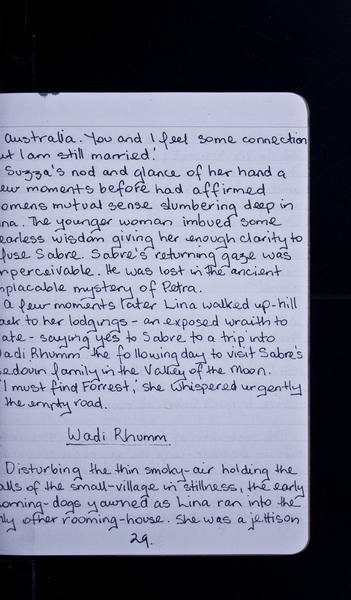 australia. You and I feel some connection
ut I am still married.'
Suzza's nod and glance of her hand a
ew moments before had affirmed
omens mutual sense slumbering deep in
na. The younger woman imbued some
earless wisdom giving her enough clarity to
fuse Sabre. Sabre's returning gaze was
mperceivable. He was lost in the ancient
mplacable mystery of Petra.
A few moments later Lina walked up-hill
ack to her lodgings - an exposed wraith to
ate - saying 'yes' to Sabre to a trip into
Wadi Rhumm the following day to visit Sabre's
bedouin family in the Valley of the Moon.
'I must find Forrest,' she whispered urgently
the empty road.
Wadi Rhumm
Disturbing the thin smoky-air holding the
alls of the small-village in stillness, the early
orning-dogs yawned as Lina ran into the
nly other rooming-house. She was a jettison
29.